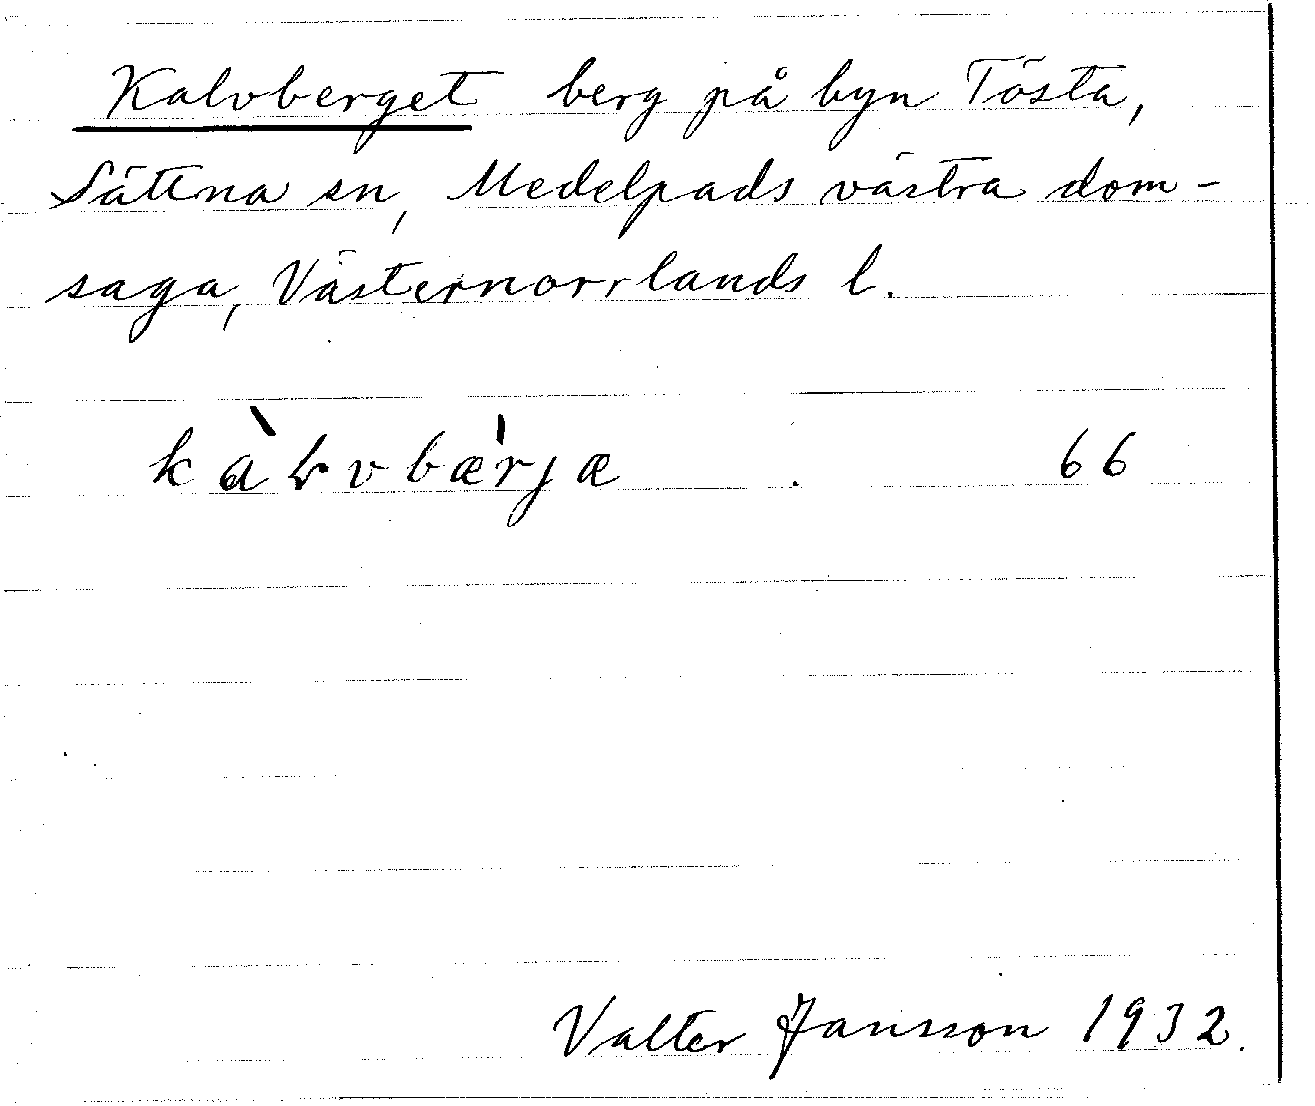 Kalvberget berg på byn Tösta,
Sättna sn, Medelpads västra dom-
saga, Västernorrlands l.
kàƚvbæ̍rjæ 66
Valter Jansson 1932.